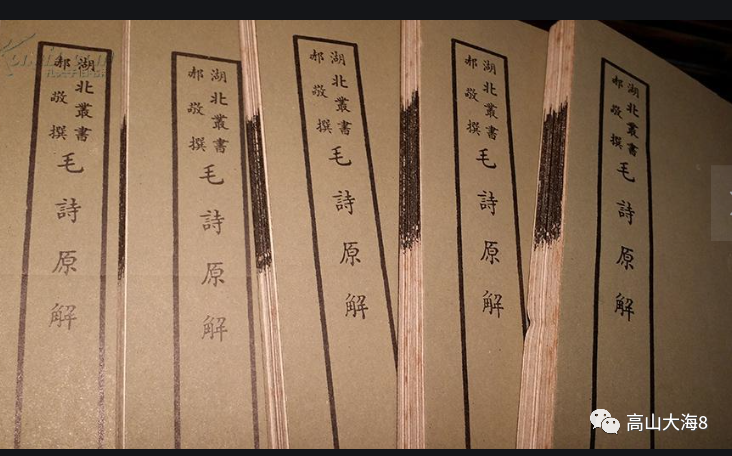 湖北叢書
郝敬撰
毛詩原解
湖北叢書
郝敬撰
毛詩原解
湖北叢書
郝敬撰
毛詩原解
湖北叢書
郝敬撰
毛詩原解
湖北叢書
郝敬撰
毛詩原解
高山大海8